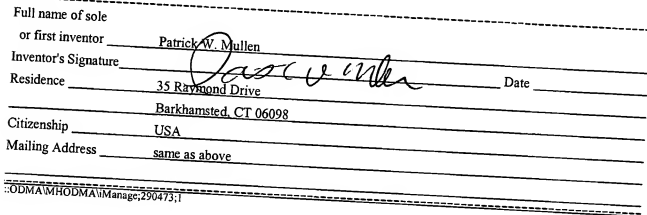 Full name of sole
or first inventor Patrick W. Mullen
Inventor's Signature Date
Residence 35 Raymond Drive
Barkhamsted, CT 06098
Citizenship USA
Mailing Address same as above
::ODMA\MHODMA\iManage;290473;1